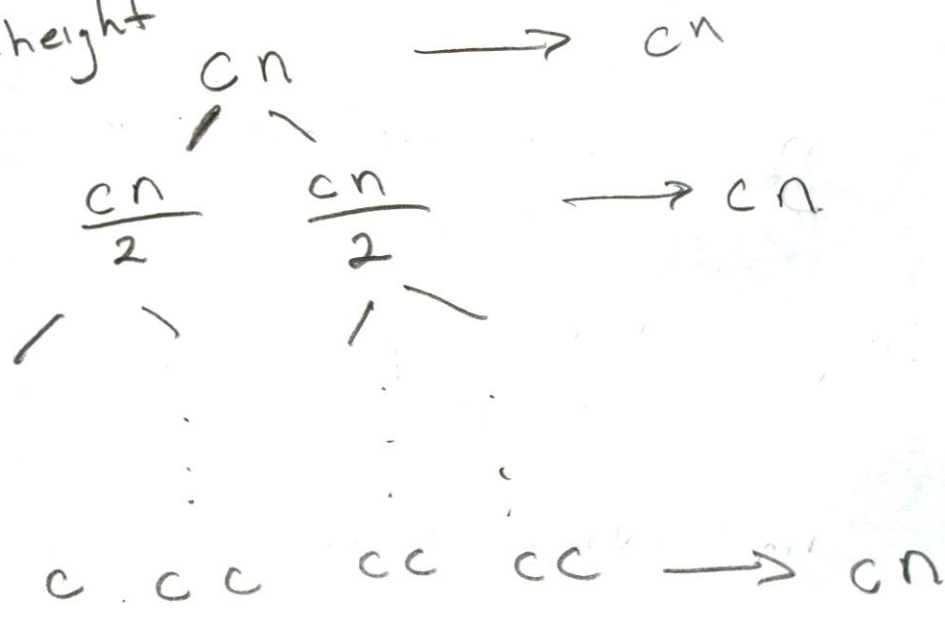 height
cn → cn
cn/2 cn/2 → cn
c cc cc cc → cn